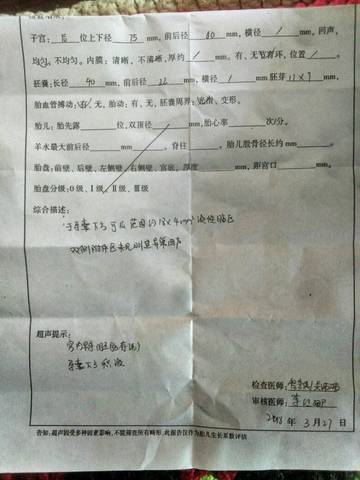 子宫: 后 位上下径 75 mm, 前后径 60 mm, 横径 / mm, 回声,
均匀、不均匀。内膜: 清晰、不清晰, 厚约 / mm。有、无节育环, 位置 / 。
胚囊: 长径 40 mm, 前后径 22 mm, 横径 / mm 胚芽 11×7 mm,
胎血管搏动: 有、无, 胎动: 有、无, 胚囊周界: 光滑、变形。
胎儿: 胎先露 位, 双顶径 mm, 胎心率 次/分。
羊水最大前后径 mm。脊柱 。胎儿股骨径长约 mm。
胎盘: 前壁、后壁、左侧壁、右侧壁、宫底、厚度 mm。距宫口 mm。
胎盘分级: 0级、Ⅰ级、Ⅱ级、Ⅲ级
综合描述:
孕囊下方可见范围约 mm 液性暗区
双侧附件区未见明显异常回声
超声提示:
宫内早孕(胚胎存活)
孕囊下方积液
检查医师:
审核医师:
2018 年 3 月 27 日
告知: 超声因受多种因素影响, 不能筛查所有畸形, 此报告仅作为胎儿生长系数评估